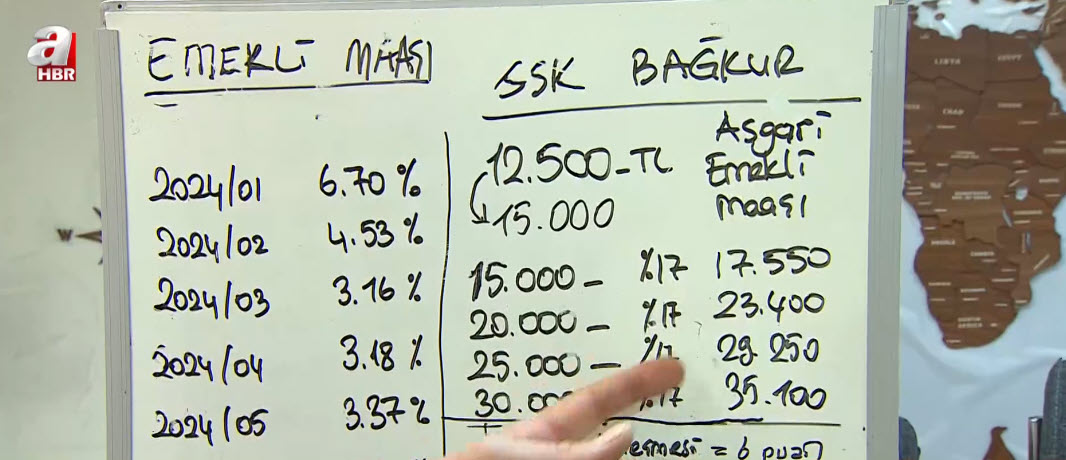 a
HBR
EMEKLİ MAAŞI
2024/01 6.70%
2024/02 4.53%
2024/03 3.16%
2024/04 3.18%
2024/05 3.37%
SSK BAĞKUR
12.500-TL
15.000
Asgari
Emekli
maaşı
15.000- %17 17.550
20.000- %17 23.400
25.000- %17 29.250
30.000 %17 35.100
= 6 puan
W